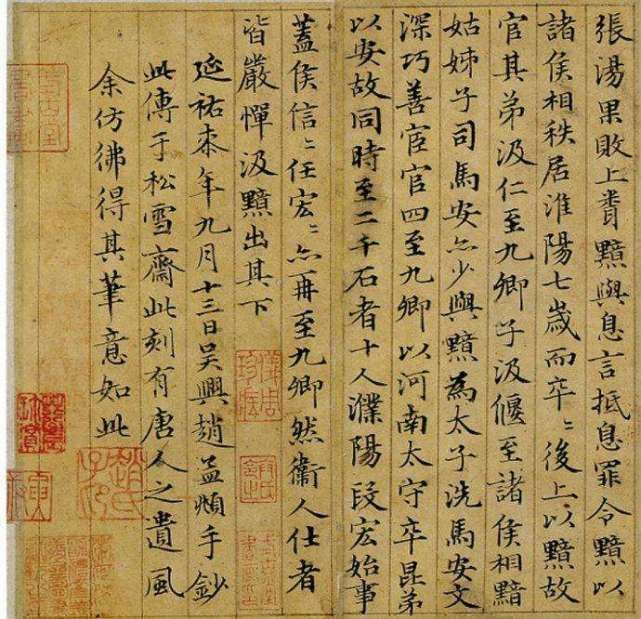 張湯果敗上黯與息言抵息罪令黯以
諸侯相秩居淮陽七歲而卒〻後上以黯故
官其弟汲仁至九卿子汲偃至諸侯相黯
姑姊子司馬安亦少與黯為太子洗馬安文
深巧善宦官四至九卿以河南太守卒昆弟
以安故同時至二千石者十人濮陽段宏始事
蓋侯信〻任宏〻亦再至九卿然衛人仕者
皆嚴憚汲黯出其下
延祐柒年九月十三日吳興趙孟頫手鈔
此傳于松雪齋此刻有唐人之遺風
余仿彿得其筆意如此
趙氏子昂